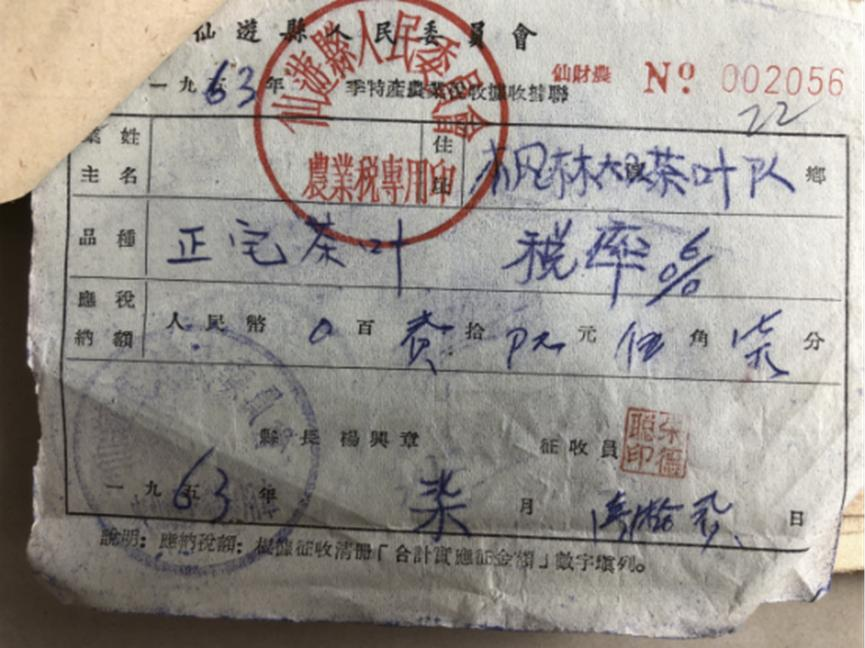 仙遊縣人民委員會
一九五63年 季特產農業稅收據收據聯 仙財農 Nº 002056
22
仙遊縣人民委員會
農業稅專用印
業主姓名 住址 枫林 茶叶队 鄉
品種 正宅茶叶 税率6%
應納稅額 人民幣 0百贰拾 元伍角柒分
縣長 楊興章 征收員
張德聰印
一九五63年 柒月 日
說明：應納稅額：根據征收清冊「合計實應征金額」數字填列。